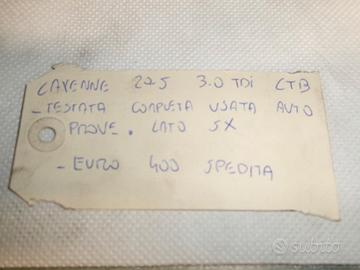 CAYENNE 225 3.0 TDI CTB
- TESTATA COMPLETA USATA AUTO
PROVE. LATO SX
- EURO 400 SPEDITA
subito